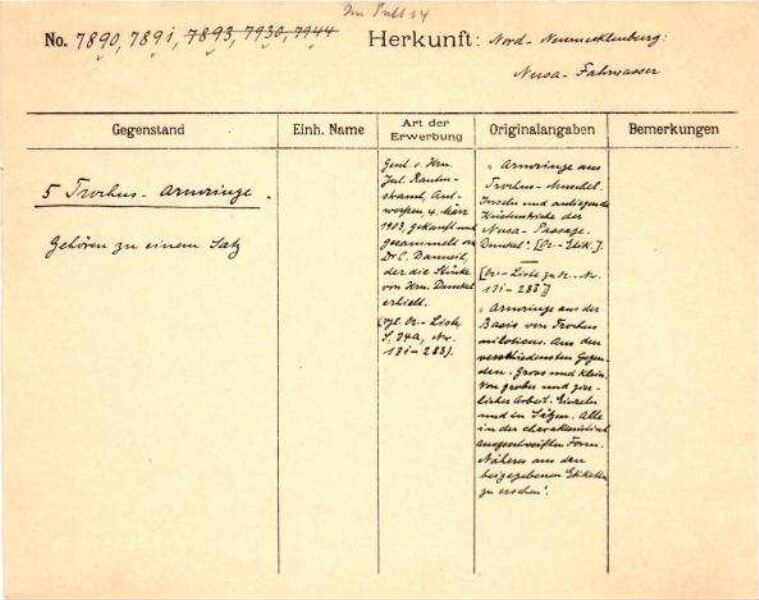 Im Pult 14
No. 7890, 7891, 7893, 7930, 7944 Herkunft: Nord-Neumecklenburg:
Nusa-Fahrwasser
Gegenstand
Einh. Name
Art der
Erwerbung
Originalangaben
Bemerkungen
5 Trochus-Armringe.
Gehören zu einem Satz
Gesch. v. Hrn.
Jul. Rauten-
strauch, Ant-
werpen, 4. März
1903, gekauft und
gesammelt von
Dr C. Danneil,
der die Stücke
von Hrn. Dunckel
erhielt.
(vgl. Or.-Liste,
S. 24a, Nr.
181-283).
"Armringe aus
Trochus-Muschel.
Inseln und anliegende
Küstenstriche der
Nusa-Passage.
Dunckel". [Or.-Etik.].
[Or.-Liste zu Nr.
181-283]
"Armringe aus der
Basis von Trochus
niloticus. Aus den
verschiedensten Gegen-
den. Gross und klein.
Von grober und zier-
licher Arbeit. Einzeln
und in Sätzen. Alle
in der charakteristisch
ausgeschweiften Form.
Näheres aus den
beigegebenen Etiketten
zu ersehen".